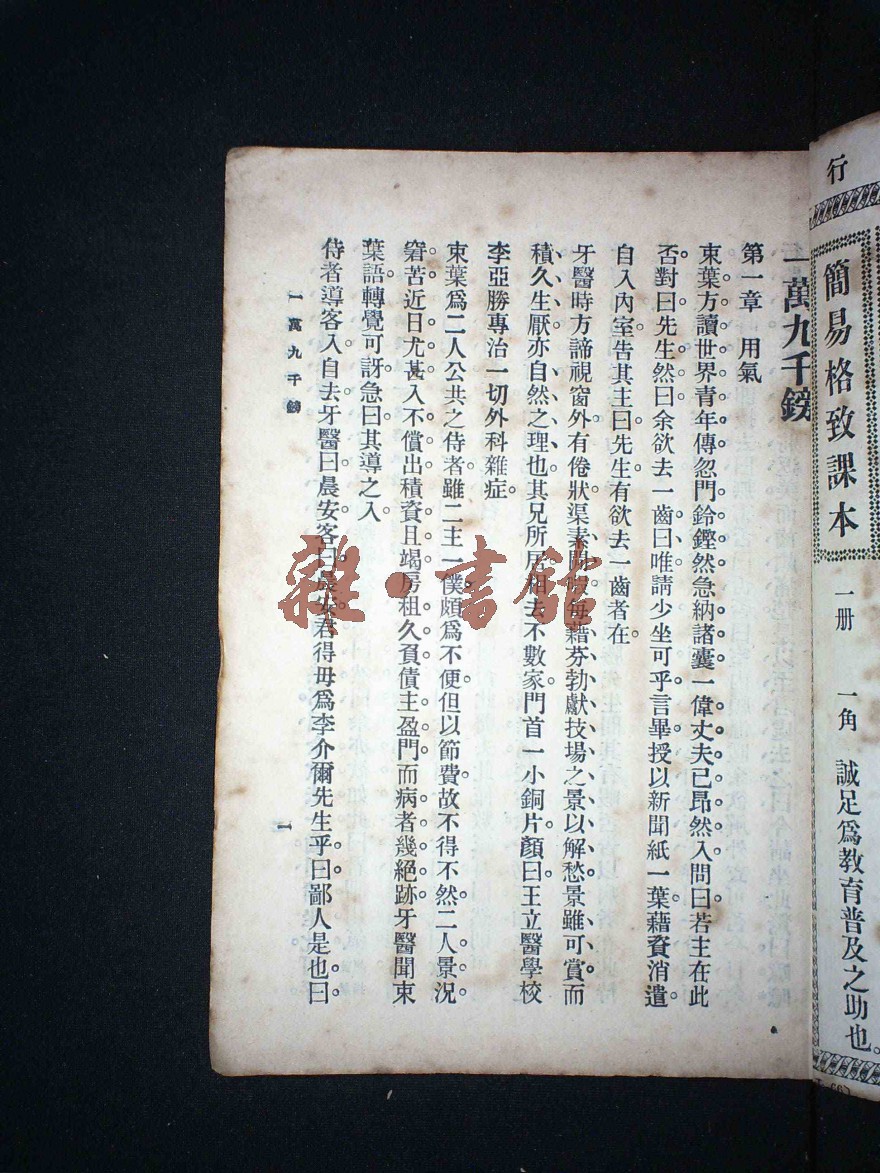 行
簡易格致課本
一册 一角 誠足爲教育普及之助也。
一萬九千鎊
第一章 用氣
束葉方讀世界青年傳忽門鈴鏗然急納諸囊一偉丈夫已昂然入問曰若主在此
否對曰先生然曰余欲去一齒曰唯請少坐可乎言畢授以新聞紙一葉藉資消遣。
自入內室告其主曰先生有欲去一齒者在。
牙醫時方諦視窗外有倦狀渠素閒暇每藉芬勃獻技場之景以解愁景雖可賞而
積久生厭亦自然之理也其兄所居相去不數家門首一小銅片顏曰王立醫學校
李亞勝專治一切外科雜症
束葉爲二人公共之侍者雖二主一僕頗爲不便但以節費故不得不然二人景況
窘苦近日尤甚入不償出積資且竭房租久負債主盈門而病者幾絕跡牙醫聞束
葉語轉覺可訝急曰其導之入
侍者導客入自去牙醫曰晨安客曰晨安君得毋爲李介爾先生乎曰鄙人是也曰
一萬九千鎊
一
雜·書館